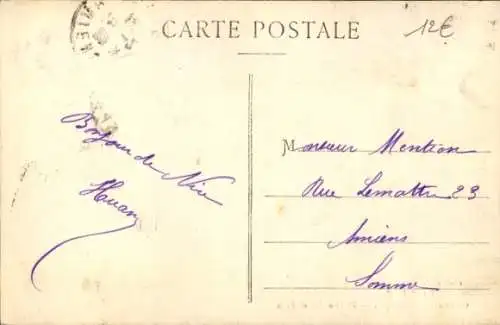 CARTE POSTALE
12€
Bonjour de Nice
Monsieur Mention
Rue Lemattre 23
Amiens
Somme